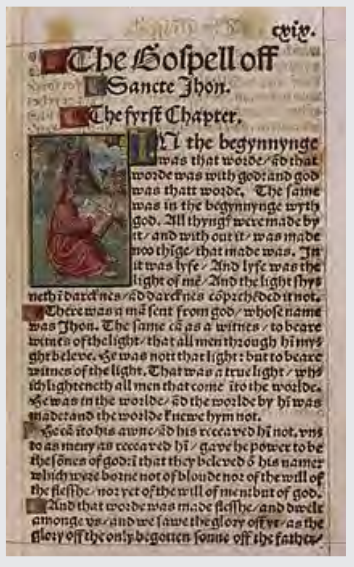 cxix.
The Gospell off
Sancte Jhon.
The fyrst Chapter.
IN the begynnynge
was that worde/ ãd that
worde was with god: and god
was thatt worde. The same
was in the begynnynge wyth
god. All thyngs were made by
it/ and with out it/ was made
noo thige/ that made was. In
it was lyfe/ And lyfe was the
light of mē/ And the light shy⸗
neth ĩ darcknes/ ãd darcknes cõprehēded it not.
There was a mã sent from god/ whose name
was Jhon. The same cã as a witnes/ to beare
witnes of the light/ that all men through hĩ my⸗
ght beleve. He was nott that light: but to beare
witnes of the light. That was a true light/ wh⸗
ich lighteneth all men that come ĩto the worlde.
He was in the worlde/ ãd the worlde by hĩ was
made: and the worlde knewe hym not.
He cã ĩto his awne/ ãd his receaved hĩ not. vn⸗
to as meny as receaved hĩ/ gave he power to be
the sõnes of god: ĩ that they beleved õ his name:
which were borne not of bloude nor of the will of
the flesshe/ nor yet of the will of men: but of god.
And that worde was made flesshe/ and dwelt
amonge vs/ and we sawe the glory off yt/ as the
glory off the only begotten sonne off the father/